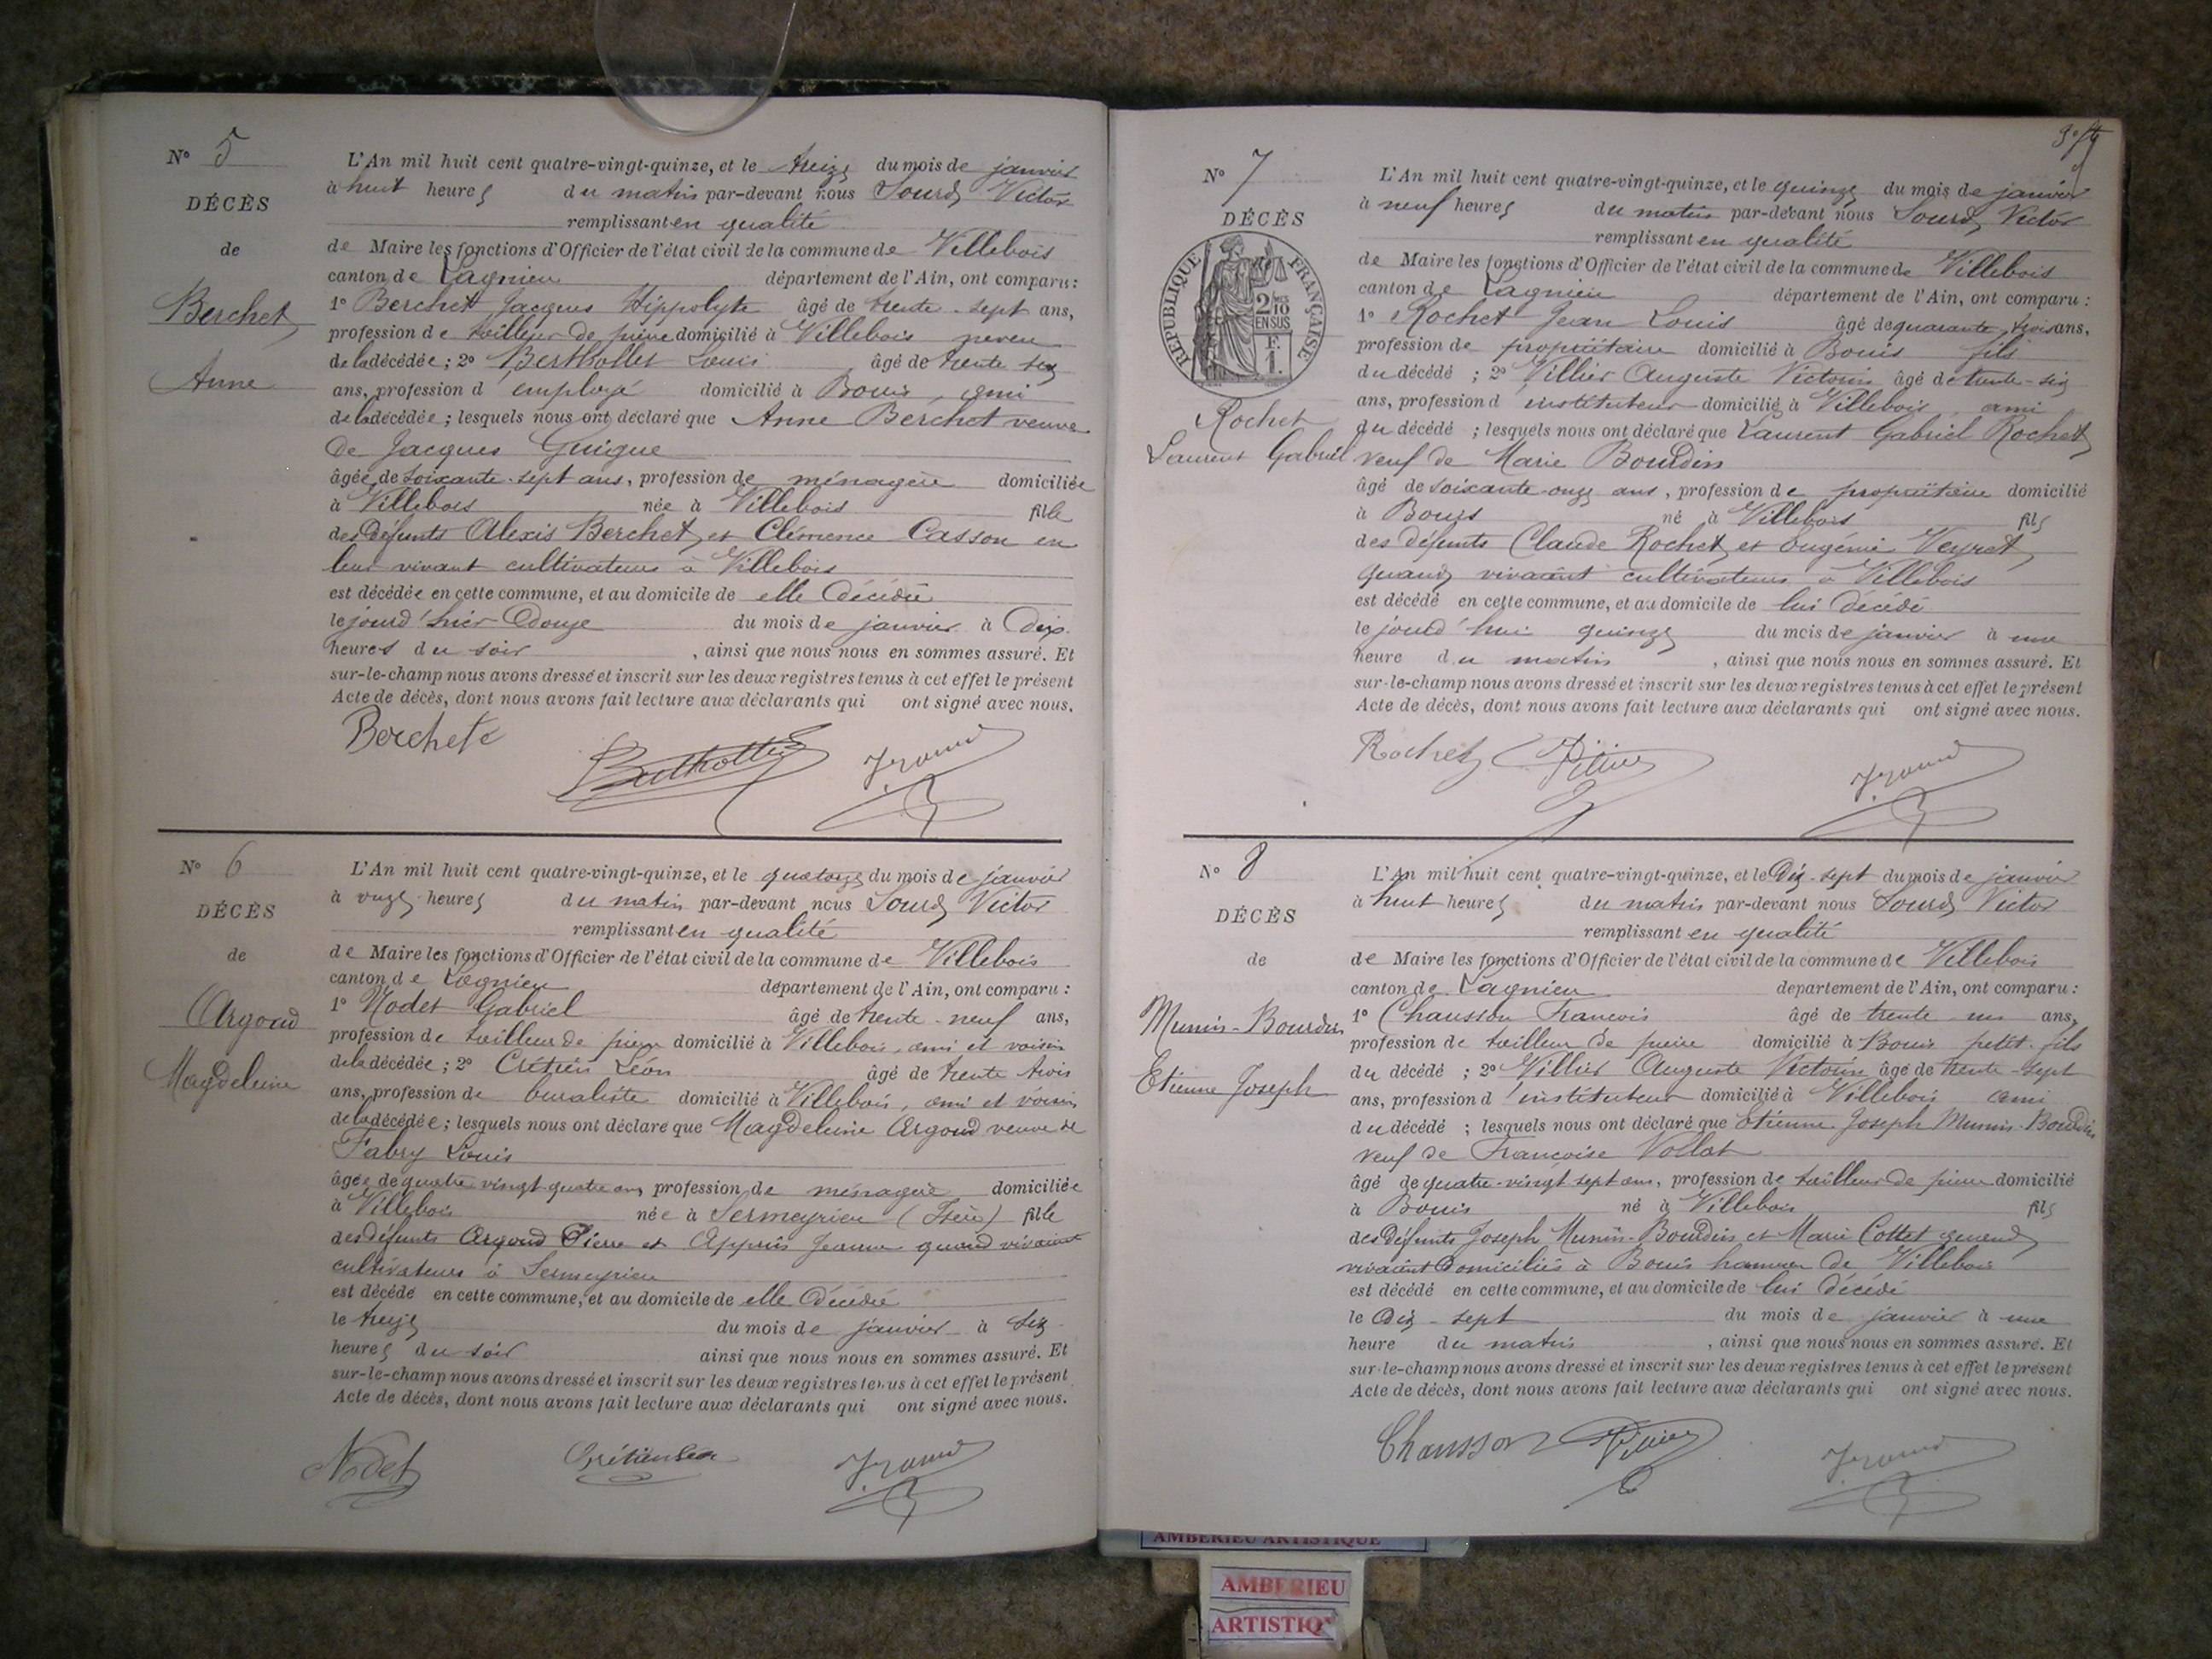 N° 5
DÉCÈS
de
Berchet
Anne
L'An mil huit cent quatre-vingt-quinze, et le treize du mois de janvier
à huit heures du matin par-devant nous Sourd Victor
remplissant en qualité
de Maire les fonctions d'Officier de l'état civil de la commune de Villebois
canton de Lagnieu département de l'Ain, ont comparu :
1° Berchet Jacques Hippolyte âgé de trente-sept ans,
profession de tailleur de pierre domicilié à Villebois neveu
de la décédée ; 2° Berthollet Louis âgé de trente six
ans, profession d'employé domicilié à Bouis, ami
de la décédée ; lesquels nous ont déclaré que Anne Berchet veuve
de Jacques Guigue
âgée de soixante-sept ans, profession de ménagère domiciliée
à Villebois née à Villebois fille
des défunts Alexis Berchet et Clémence Casson en
leur vivant cultivateurs à Villebois
est décédée en cette commune, et au domicile de elle décédée
le jourd'hier douze du mois de janvier à dix
heures du soir, ainsi que nous nous en sommes assuré. Et
sur-le-champ nous avons dressé et inscrit sur les deux registres tenus à cet effet le présent
Acte de décès, dont nous avons fait lecture aux déclarants qui ont signé avec nous.
Berchet
Berthollet
N° 6
DÉCÈS
de
Argoud
Magdeleine
L'An mil huit cent quatre-vingt-quinze, et le quatorze du mois de janvier
à onze heures du matin par-devant nous Sourd Victor
remplissant en qualité
de Maire les fonctions d'Officier de l'état civil de la commune de Villebois
canton de Lagnieu département de l'Ain, ont comparu :
1° Nodet Gabriel âgé de trente-neuf ans,
profession de tailleur de pierre domicilié à Villebois, ami et voisin
de la décédée ; 2° Crétien Léon âgé de trente trois
ans, profession de buraliste domicilié à Villebois, ami et voisin
de la décédée ; lesquels nous ont déclaré que Magdeleine Argoud veuve de
Fabry Louis
âgée de quatre vingt-quatre ans profession de ménagère domiciliée
à Villebois née à Sermeyrieu (Isère) fille
des défunts Argoud Pierre et Jeanne quand vivaient
cultivateurs à Sermeyrieu
est décédé en cette commune, et au domicile de elle décédée
le treize du mois de janvier à six
heures du soir ainsi que nous nous en sommes assuré. Et
sur-le-champ nous avons dressé et inscrit sur les deux registres tenus à cet effet le présent
Acte de décès, dont nous avons fait lecture aux déclarants qui ont signé avec nous.
Nodet
N° 7
DÉCÈS
RÉPUBLIQUE FRANÇAISE
2/10
EN SUS
F.
1.
Rochet
Laurent Gabriel
L'An mil huit cent quatre-vingt-quinze, et le quinze du mois de janvier
à neuf heures du matin par-devant nous Sourd Victor
remplissant en qualité
de Maire les fonctions d'Officier de l'état civil de la commune de Villebois
canton de Lagnieu département de l'Ain, ont comparu :
1° Rochet Jean Louis âgé de quarante trois ans,
profession de propriétaire domicilié à Bouis fils
du décédé ; 2° Villier Auguste Victorin âgé de trente-six
ans, profession d'instituteur domicilié à Villebois, ami
du décédé ; lesquels nous ont déclaré que Laurent Gabriel Rochet
veuf de Marie Bourdin
âgé de soixante-onze ans, profession de propriétaire domicilié
à Bouis né à Villebois fils
des défunts Claude Rochet et Eugénie Veyret,
quand vivaient cultivateurs à Villebois
est décédé en cette commune, et au domicile de lui décédé
le jourd'hui quinze du mois de janvier à une
heure du matin, ainsi que nous nous en sommes assuré. Et
sur-le-champ nous avons dressé et inscrit sur les deux registres tenus à cet effet le présent
Acte de décès, dont nous avons fait lecture aux déclarants qui ont signé avec nous.
Rochet Villier
N° 8
DÉCÈS
de
Munin-Bourdin
Etienne Joseph
L'An mil huit cent quatre-vingt-quinze, et le dix-sept du mois de janvier
à huit heures du matin par-devant nous Sourd Victor
remplissant en qualité
de Maire les fonctions d'Officier de l'état civil de la commune de Villebois
canton de Lagnieu département de l'Ain, ont comparu :
1° Chausson Francois âgé de trente-un ans,
profession de tailleur de pierre domicilié à Bouis petit-fils
du décédé ; 2° Villier Auguste Victorin âgé de trente-sept
ans, profession d'instituteur domicilié à Villebois ami
du décédé ; lesquels nous ont déclaré que Etienne Joseph Munin-Bourdin
veuf de Francoise Vollat
âgé de quatre-vingt sept ans, profession de tailleur de pierre domicilié
à Bouis né à Villebois fils
des défunts Joseph Munin-Bourdin et Marie Cottet quand
vivaient domiciliés à Bouis hameau de Villebois
est décédé en cette commune, et au domicile de lui décédé
le dix-sept du mois de janvier à une
heure du matin, ainsi que nous nous en sommes assuré. Et
sur-le-champ nous avons dressé et inscrit sur les deux registres tenus à cet effet le présent
Acte de décès, dont nous avons fait lecture aux déclarants qui ont signé avec nous.
Chausson Villier
AMBERIEU ARTISTIQUE
AMBERIEU
ARTISTIQ